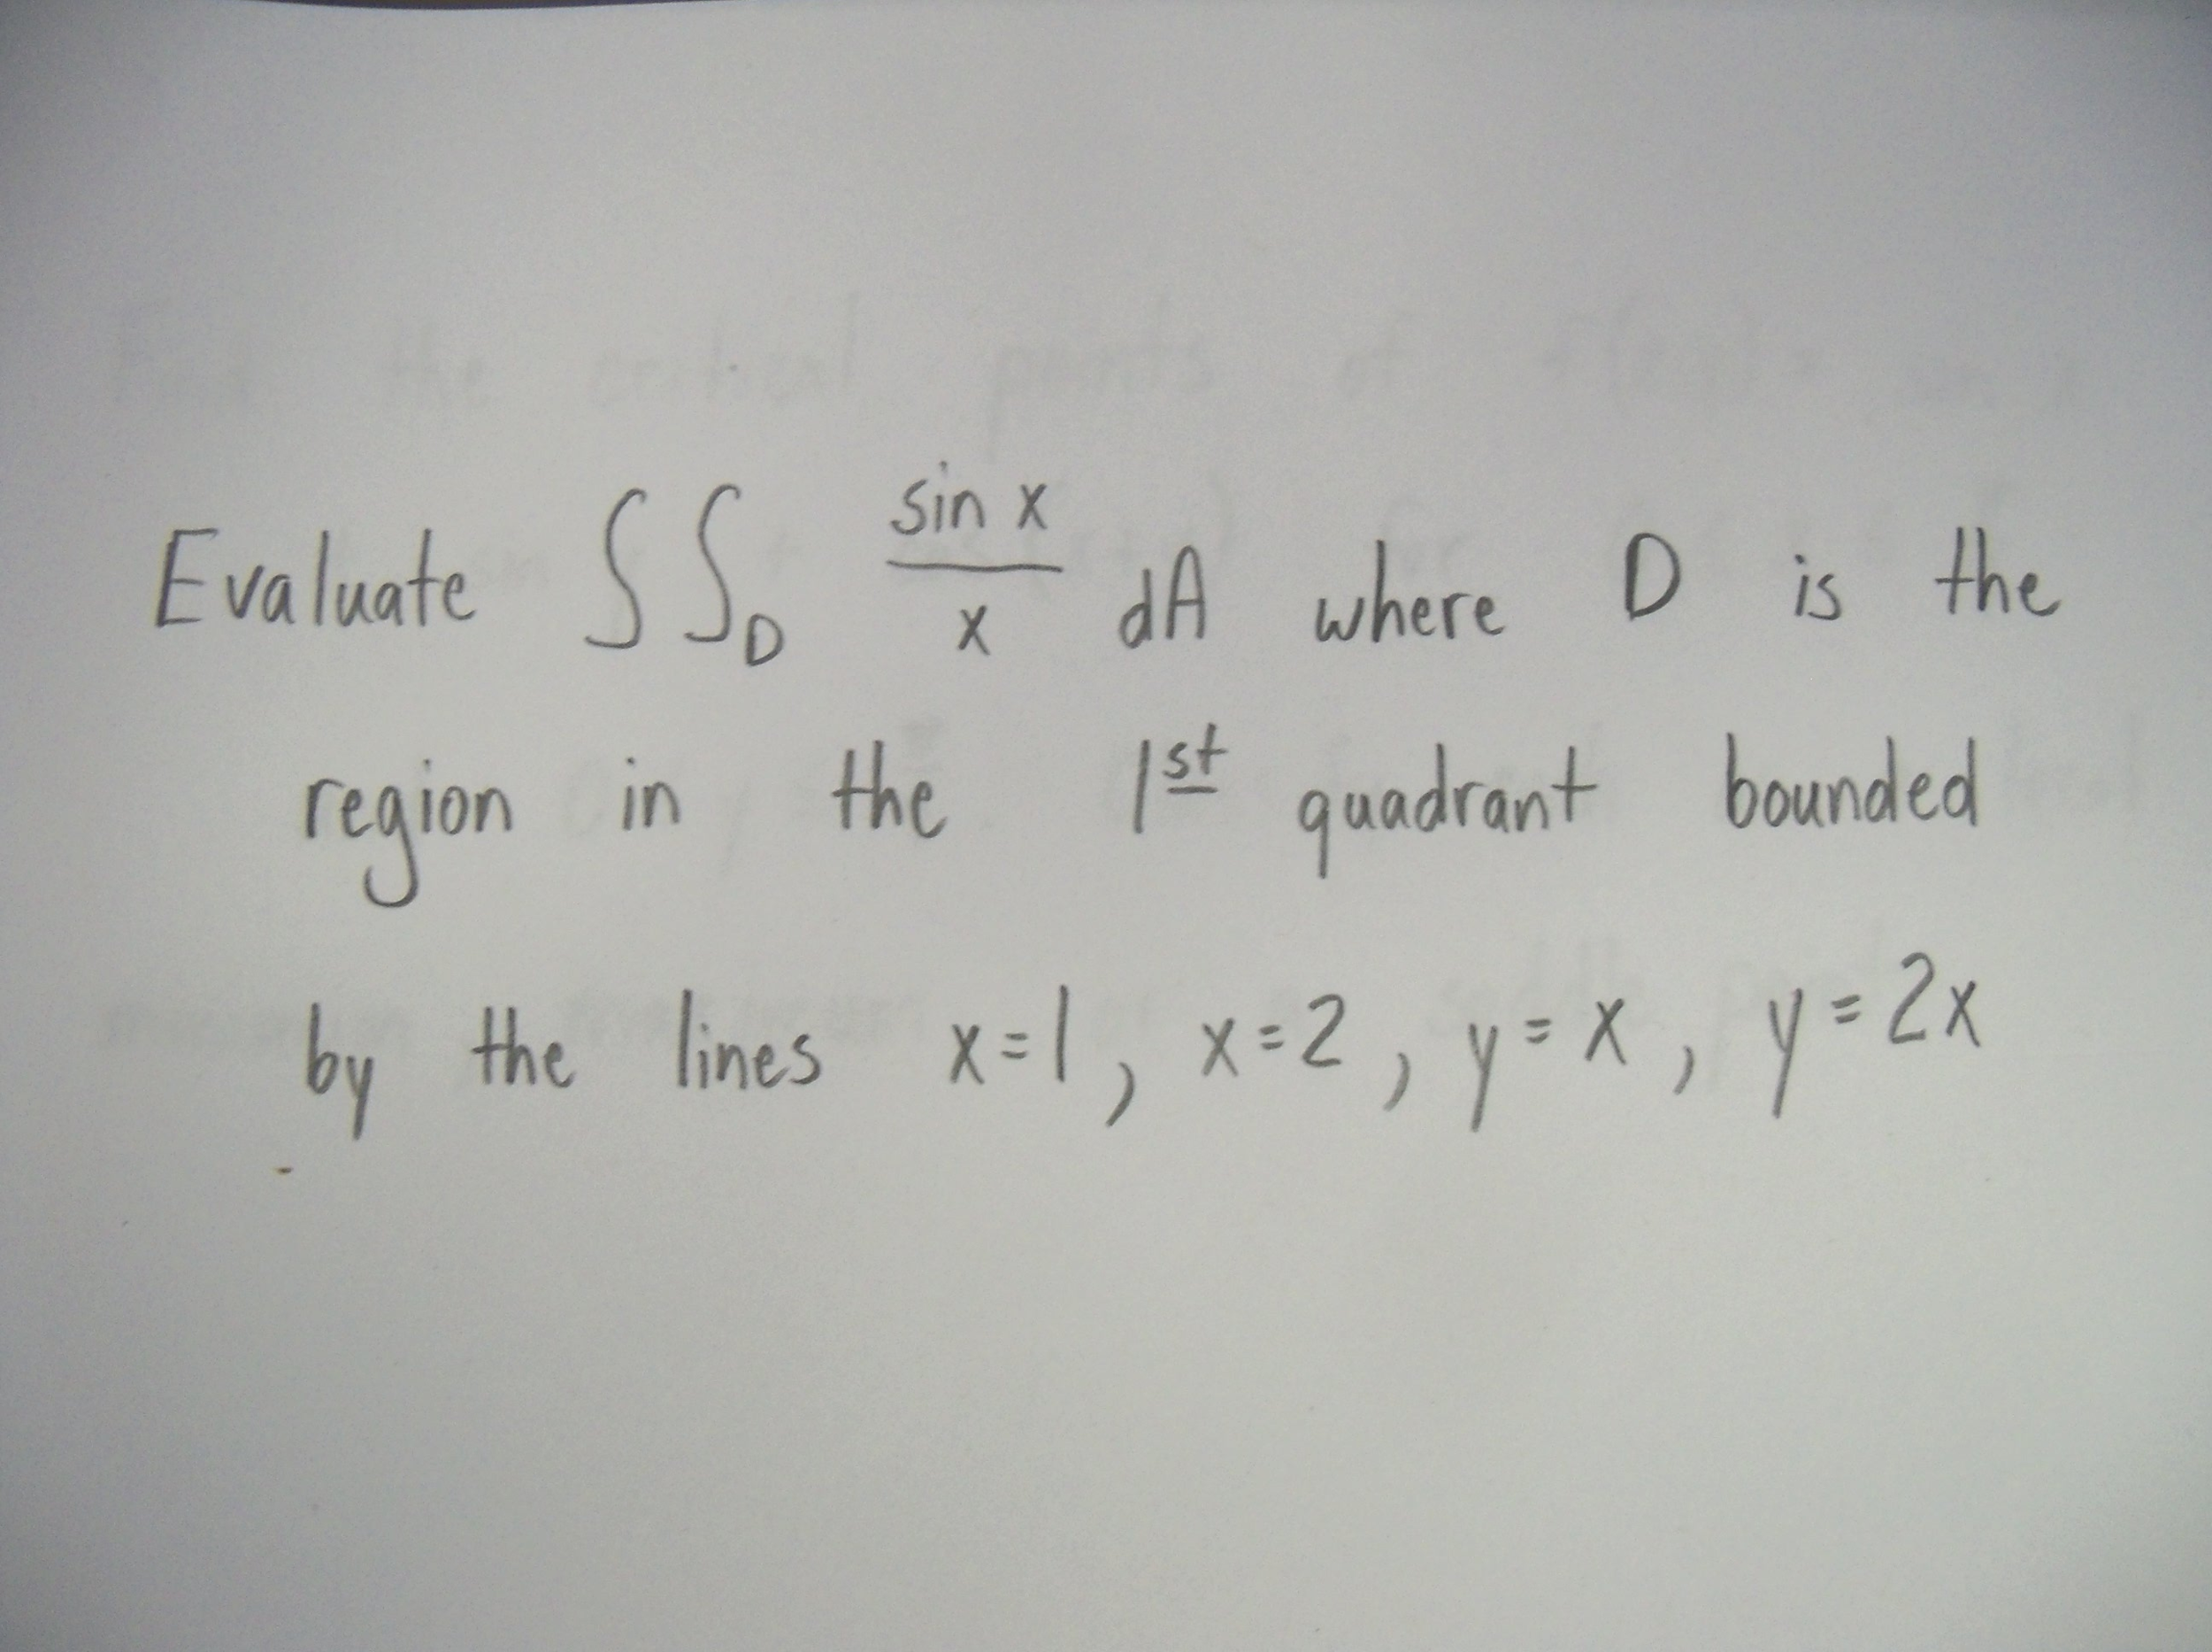 Evaluate ∫∫_D sin x / x dA where D is the
region in the 1st quadrant bounded
by the lines x=1, x=2, y=x, y=2x